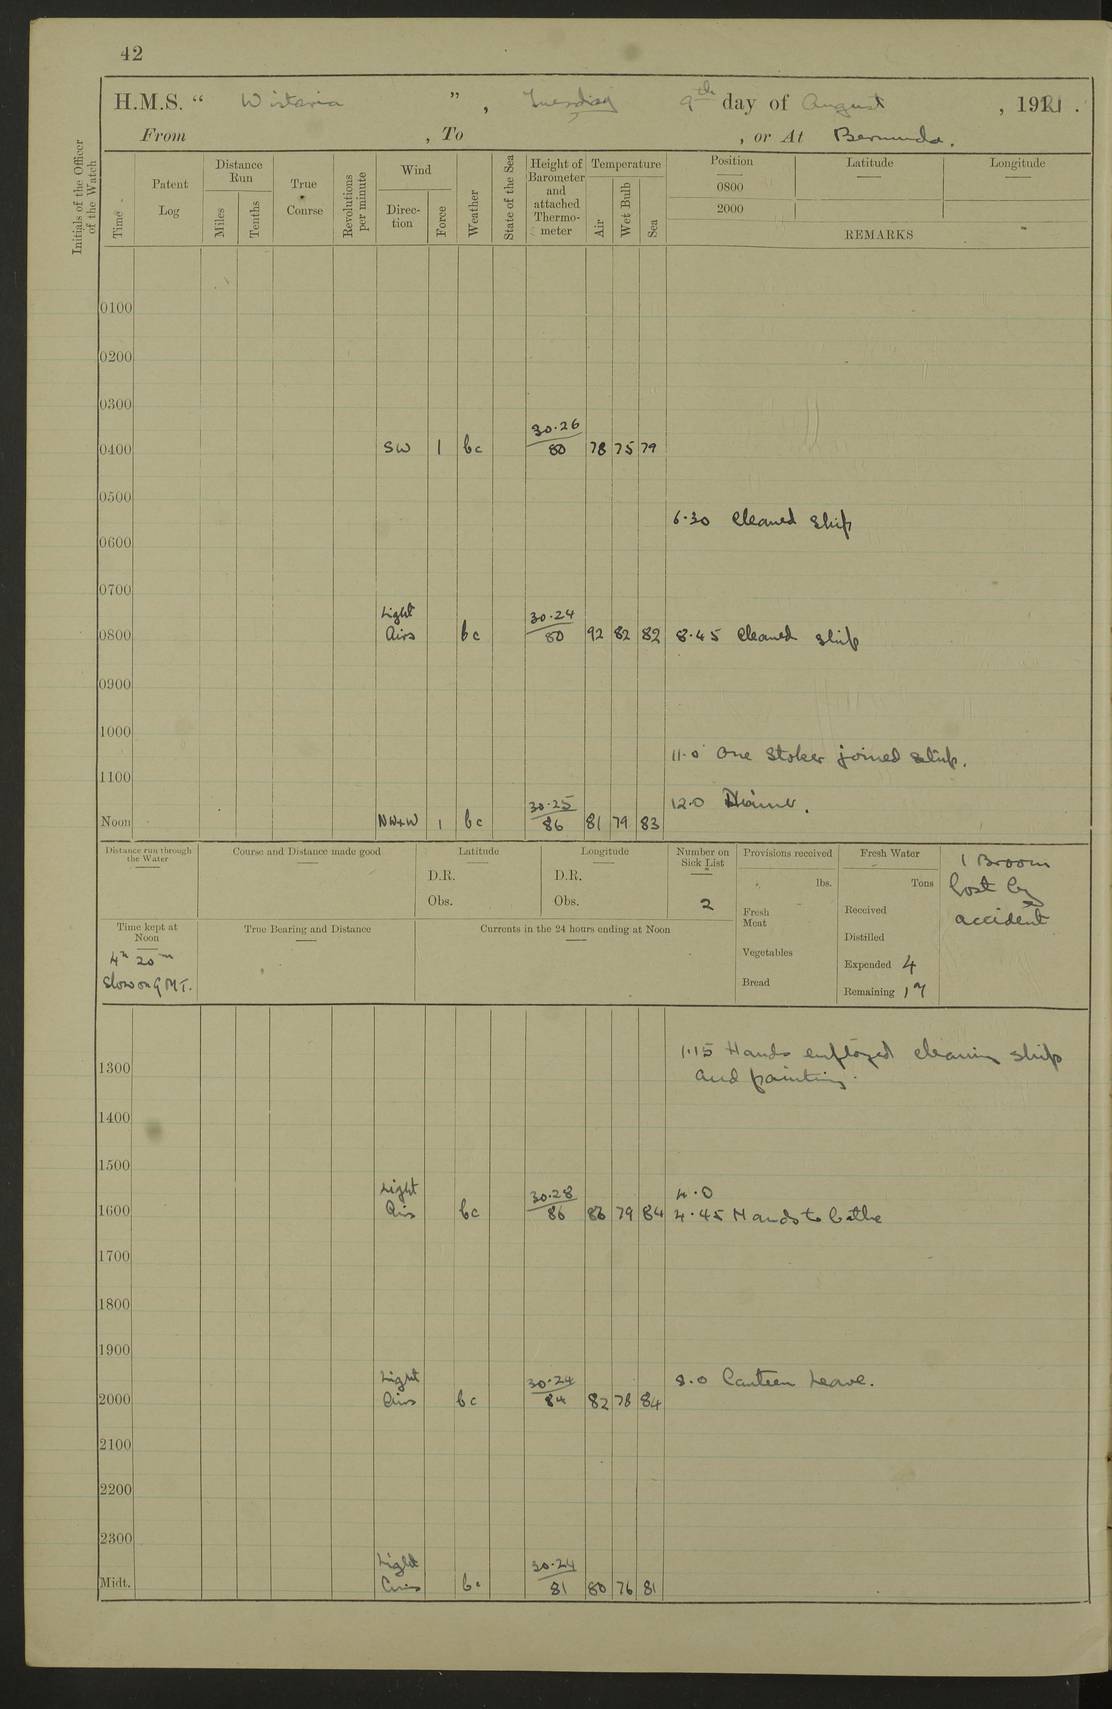 42
H.M.S. “ Wistaria ” , Tuesday 9th day of August , 1921 .
From , To , or At Bermuda.
Initials of the Officer of the Watch
Time
Patent Log
Distance Run
Miles
Tenths
True Course
Revolutions per minute
Wind
Direc-tion
Force
Weather
State of the Sea
Height of Barometer and attached Thermo-meter
Temperature
Air
Wet Bulb
Sea
Position Latitude Longitude
0800
2000
REMARKS
0100
0200
0300
30.26
0400 SW 1 bc 80 78 75 79
0500
6.30 Cleaned ship
0600
0700
Light 30.24
0800 Airs bc 80 92 82 82 8.45 Cleaned ship
0900
1000
11.0 One Stoker joined ship.
1100
30.25 12.0 Dinner.
Noon NWxW 1 bc 86 81 79 83
Distance run through the Water
Course and Distance made good
Latitude
D.R.
Obs.
Longitude
D.R.
Obs.
Number on Sick List
2
Provisions received
lbs.
Fresh Meat
Vegetables
Bread
Fresh Water
Tons
Received
Distilled
Expended 4
Remaining 17
1 Broom
lost by
accident
Time kept at Noon
4h 20m
Slow on G.M.T.
True Bearing and Distance
Currents in the 24 hours ending at Noon
1.15 Hands employed cleaning ship
1300 and painting.
1400
1500
Light 30.28 4.0
1600 Airs bc 86 86 79 84 4.45 Hands to bathe
1700
1800
1900
Light 30.24 8.0 Canteen Leave.
2000 Airs bc 84 82 78 84
2100
2200
2300
Light 30.24
Midt. Airs bc 81 80 76 81